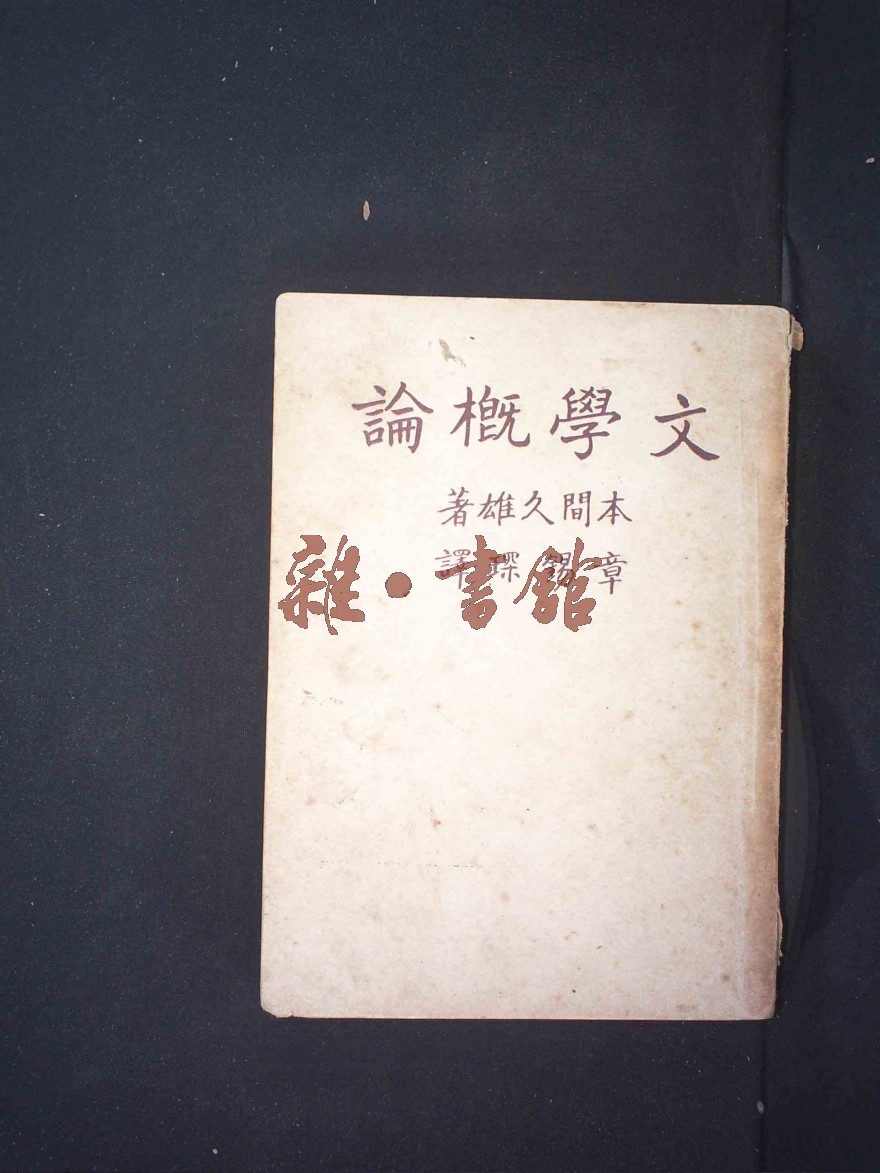 文學概論
本間久雄著
章錫琛譯
雜·書館